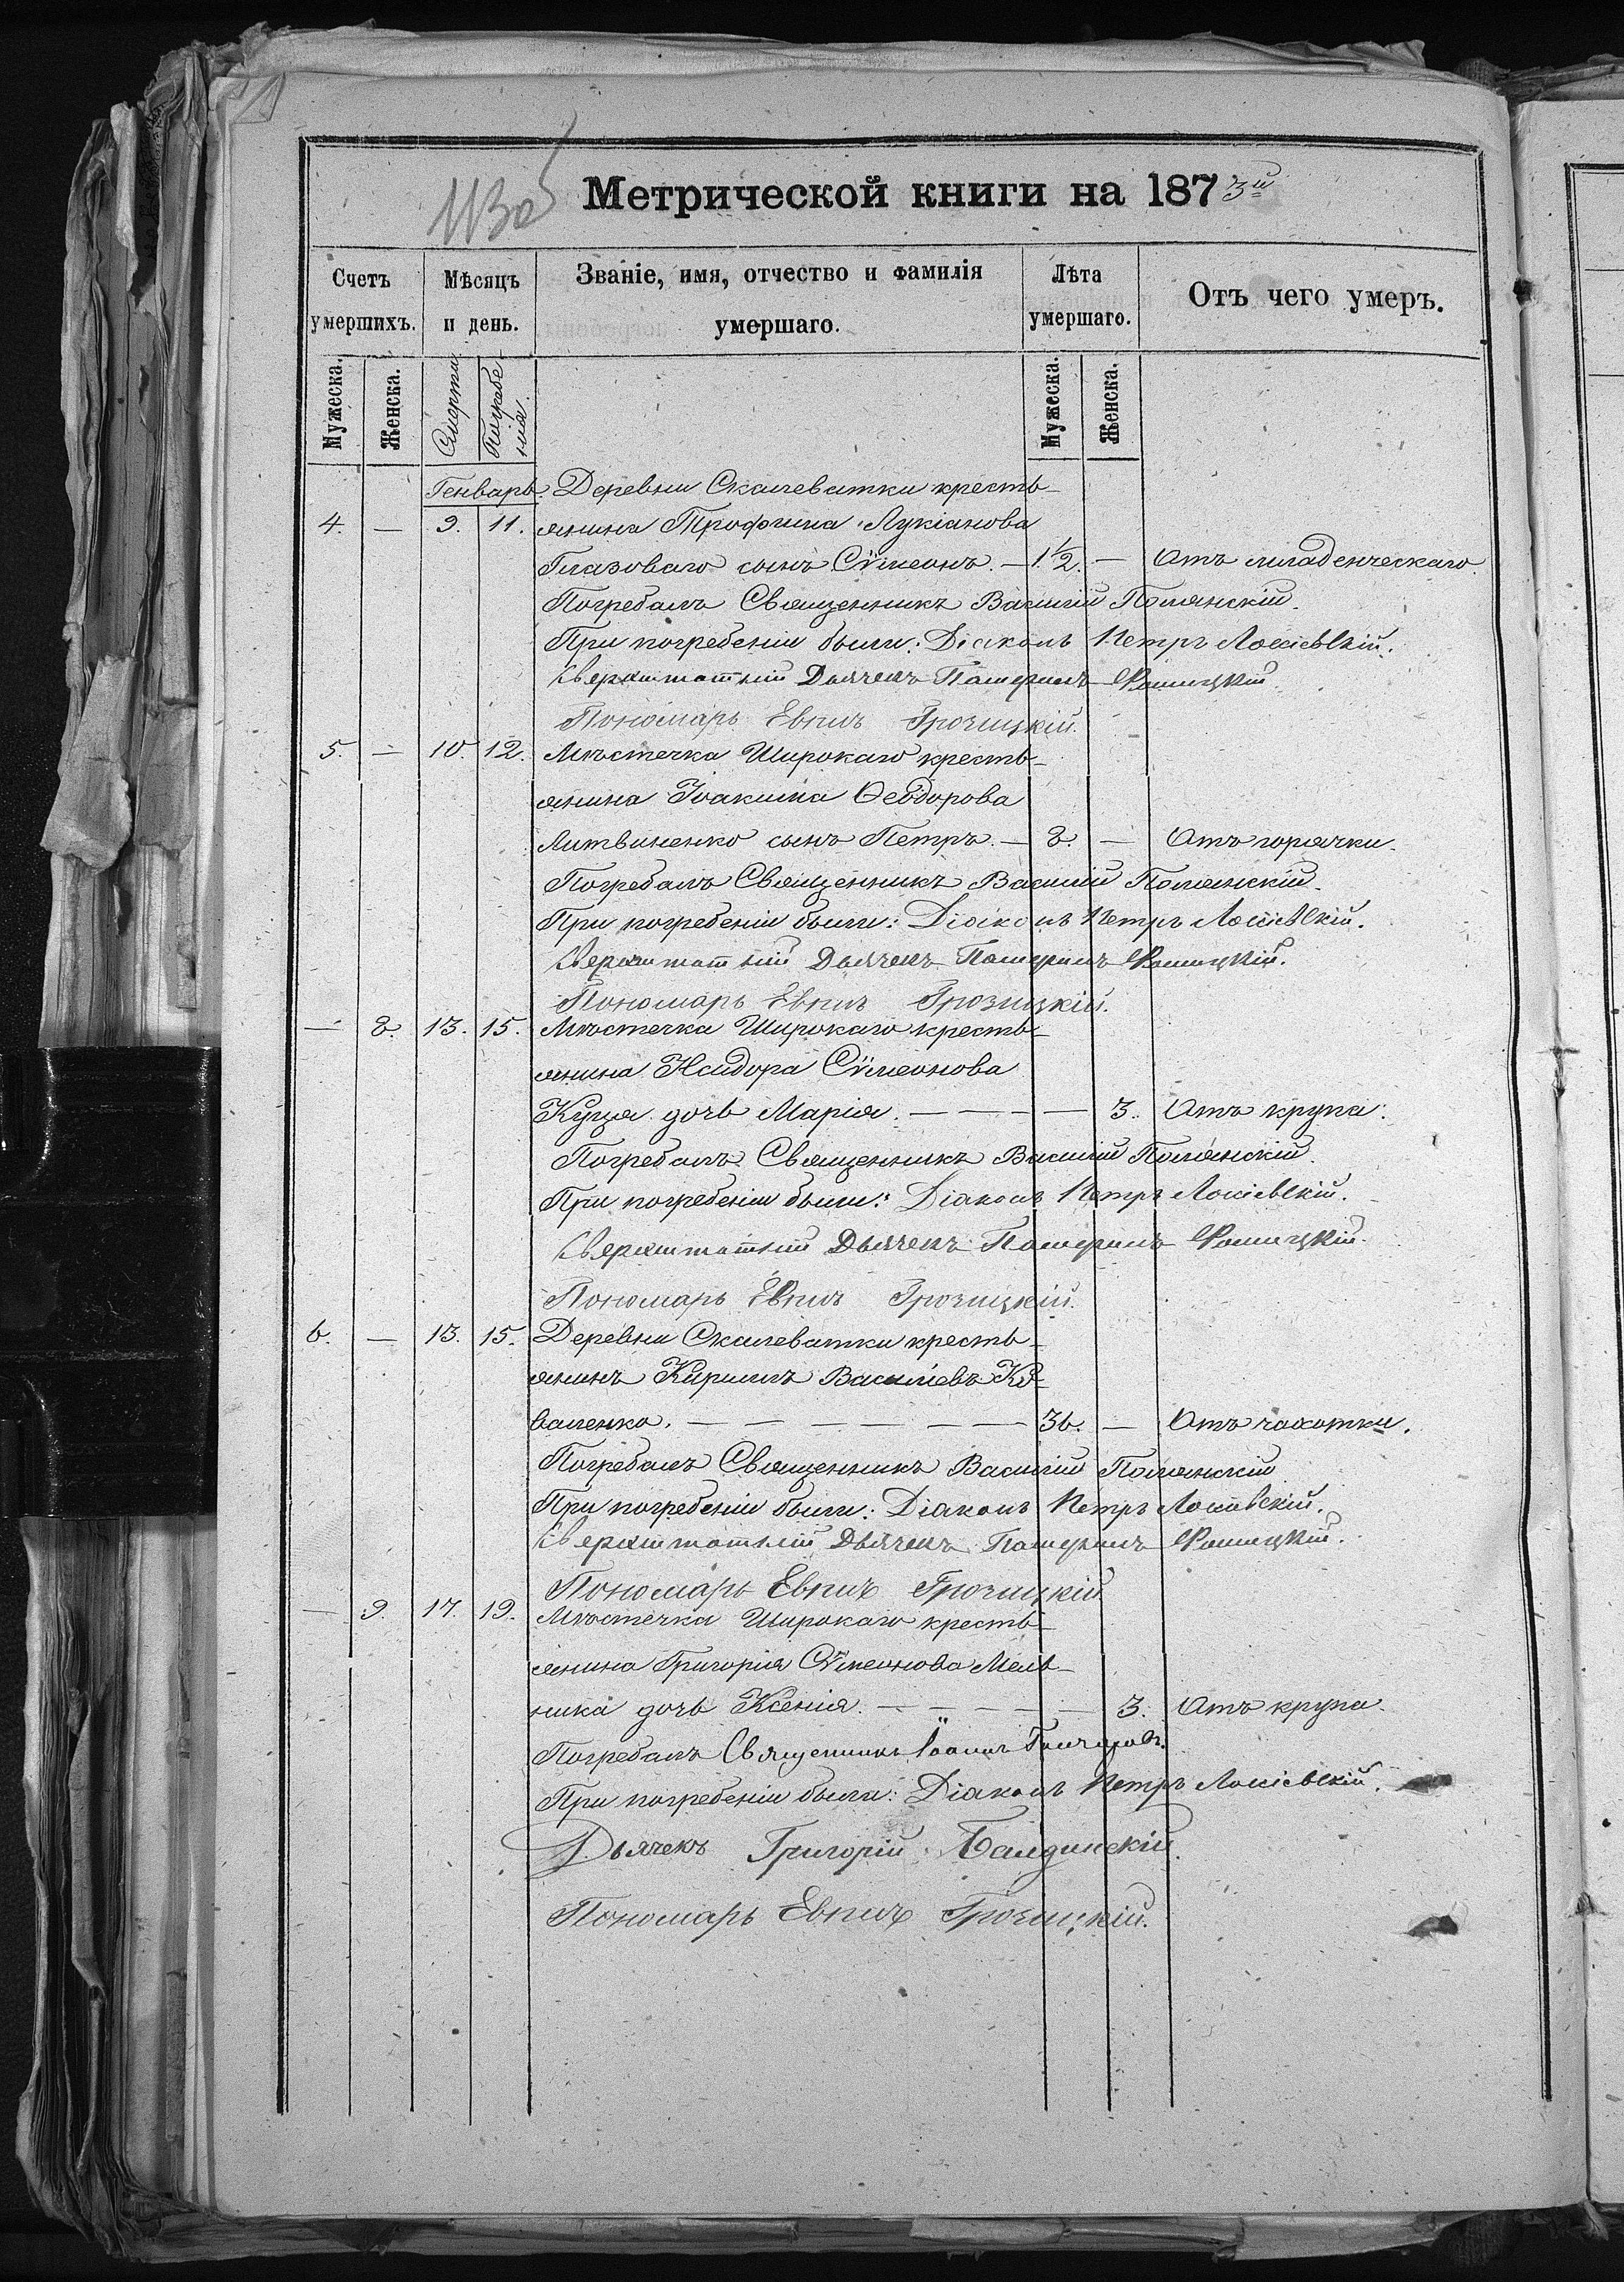 Метрической книги на 1873й
Счетъ умершихъ.
Мѣсяцъ и день.
Званіе, имя, отчество и фамилія умершаго.
Лѣта умершаго.
Отъ чего умеръ.
Мужеска. Женска. Смерти. Погребенія. Мужеска. Женска.
Генварь. Деревни Скалеватки кресть-
4. — 9. 11. янина Трофима Лукіанова
Глазоваго сынъ Сѵмеонъ. — 1½. — Отъ младенческаго.
Погребалъ Священникъ Василій Полянскій.
При погребеніи были: Діаконъ Петръ
Сверхштатный Дьячекъ
Пономарь
5. — 10. 12. Мѣстечка Широкаго кресть-
янина Іоакима Ѳеодорова
Литвиненко сынъ Петръ. — 2. — Отъ горячки.
Погребалъ Священникъ Василій Полянскій.
При погребеніи были: Діаконъ Петръ
Сверхштатный Дьячекъ
Пономарь
— 8. 13. 15. Мѣстечка Широкаго кресть-
янина Исидора Сѵмеонова
Куца дочь Марія. — — — — 3. Отъ крупа.
Погребалъ Священникъ Василій Полянскій.
При погребеніи были: Діаконъ Петръ
Сверхштатный Дьячекъ
Пономарь
6. — 13. 15. Деревни Скалеватки кресть-
янинъ Кириллъ Васильевъ Ко-
валенко. — — — — — — 36. — Отъ чахотки.
Погребалъ Священникъ Василій Полянскій
При погребеніи были: Діаконъ Петръ
Сверхштатный Дьячекъ
Пономарь
— 9. 17. 19. Мѣстечка Широкаго кресть-
янина Григорія Сѵмеонова Мель-
ника дочь Ксенія. — — — — 3. Отъ крупа.
Погребалъ Священникъ Іоаннъ Гончаровъ.
При погребеніи были: Діаконъ Петръ
Дьячекъ Григорій Балдинскій.
Пономарь